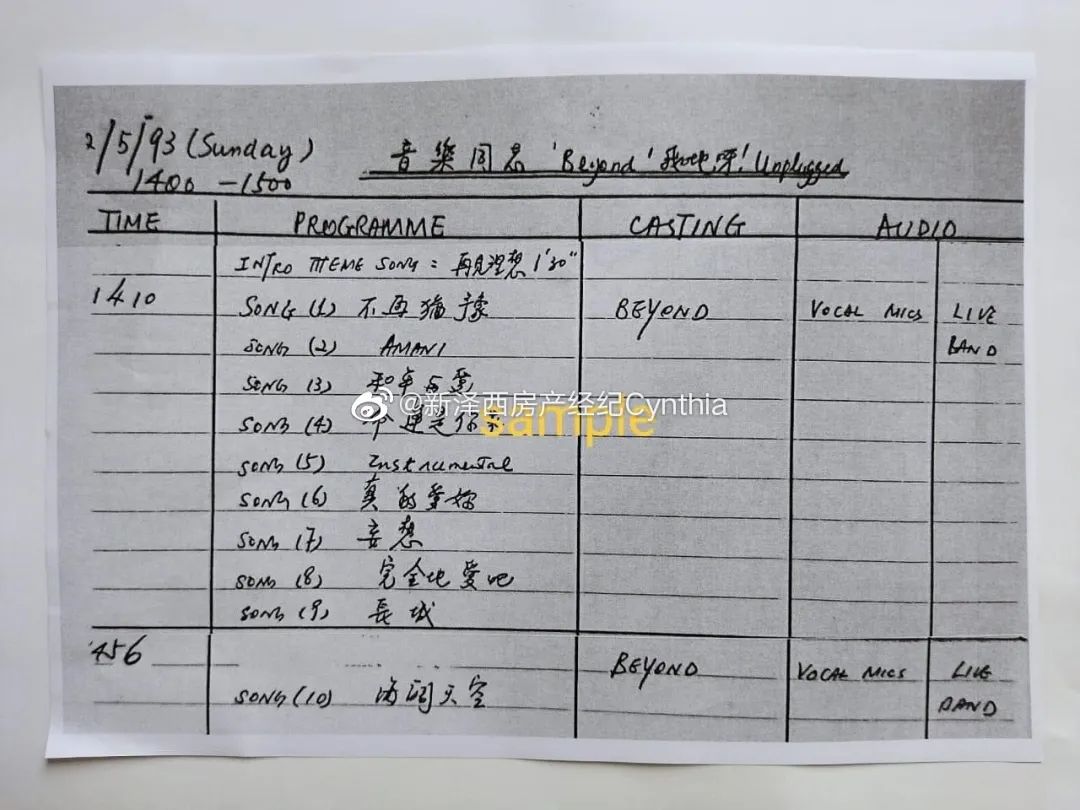 2/5/93 (Sunday)
1400 - 1500
音樂同 'Beyond' Unplugged
TIME PROGRAMME CASTING AUDIO
INTRO THEME SONG : 再見理想 1'30"
1410 SONG (1) 不再猶豫 BEYOND VOCAL MICS LIVE
SONG (2) AMANI BAND
SONG (3) 和平与爱
@新泽西房产经纪Cynthia
SONG (4)
sample
SONG (5) Instrumental
SONG (6) 真的愛妳
SONG (7) 妄想
SONG (8) 完全地愛吧
SONG (9) 長城
1456 BEYOND VOCAL MICS LIVE
SONG (10) 海闊天空 BAND